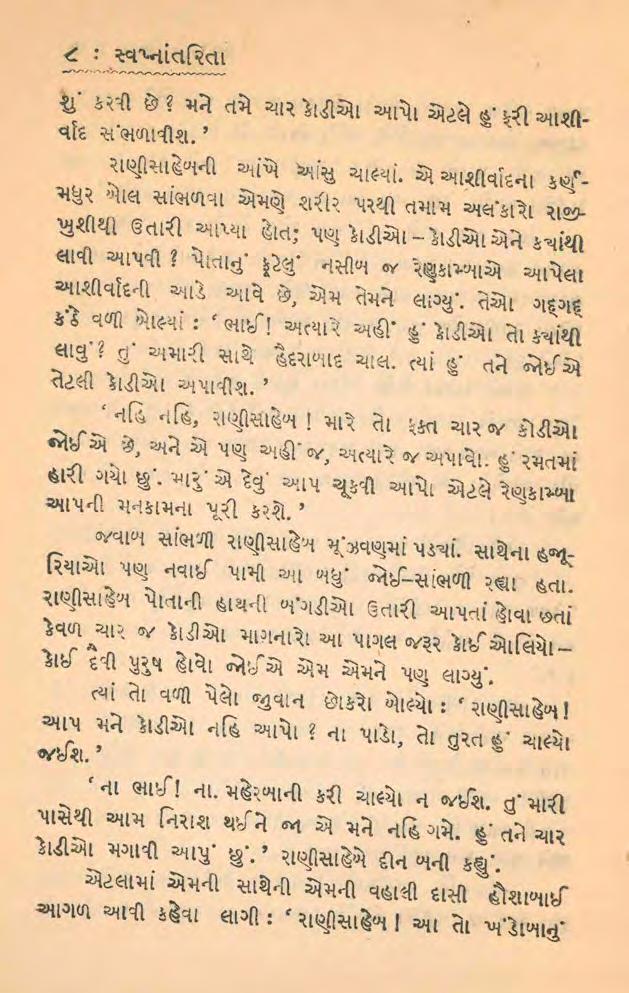 ૮ : સ્વપ્નાંતરિતા
શું કરવી છે? મને તમે ચાર કોડીઓ આપો એટલે હું ફરી આશી-
ર્વાદ સંભળાવીશ.'
રાણીસાહેબની આંખે આંસુ ચાલ્યાં. એ આશીર્વાદના કર્ણ-
મધુર બોલ સાંભળવા એમણે શરીર પરથી તમામ અલંકારો રાજી-
ખુશીથી ઉતારી આપ્યા હોત; પણ કોડીઓ – કોડીઓ એને ક્યાંથી
લાવી આપવી ? પોતાનું ફૂટેલું નસીબ જ રેણુકામ્બાએ આપેલા
આશીર્વાદની આડે આવે છે, એમ તેમને લાગ્યું. તેઓ ગદ્ગદ્
કંઠે વળી બોલ્યાં : ‘ ભાઈ! અત્યારે અહીં હું કોડીઓ તો ક્યાંથી
લાવું? તું અમારી સાથે હૈદરાબાદ ચાલ. ત્યાં હું તને જોઈએ
તેટલી કોડીઓ અપાવીશ.'
‘ નહિ નહિ, રાણીસાહેબ ! મારે તો ફક્ત ચાર જ કોડીઓ
જોઈએ છે, અને એ પણ અહીં જ, અત્યારે જ અપાવો. હું રમતમાં
હારી ગયો છું. મારું એ દેવું આપ ચૂકવી આપો એટલે રેણુકામ્બા
આપની મનકામના પૂરી કરશે.'
જવાબ સાંભળી રાણીસાહેબ મૂંઝવણમાં પડ્યાં. સાથેના હજૂ-
રિયાઓ પણ નવાઈ પામી આ બધું જોઈ–સાંભળી રહ્યા હતા.
રાણીસાહેબ પોતાની હાથની બંગડીઓ ઉતારી આપતાં હોવા છતાં
કેવળ ચાર જ કોડીઓ માગનારો આ પાગલ જરૂર કોઈ ઓલિયો –
કોઈ દૈવી પુરુષ હોવો જોઈએ એમ એમને પણ લાગ્યું.
ત્યાં તો વળી પેલો જુવાન છોકરો બોલ્યો : ‘ રાણીસાહેબ!
આપ મને કોડીઓ નહિ આપો ? ના પાડો, તો તુરત હું ચાલ્યો
જઈશ.'
‘ના ભાઈ! ના. મહેરબાની કરી ચાલ્યો ન જઈશ. તું મારી
પાસેથી આમ નિરાશ થઈને જા એ મને નહિ ગમે. હું તને ચાર
કોડીઓ મગાવી આપું છું.' રાણીસાહેબે દીન બની કહ્યું.
એટલામાં એમની સાથેની એમની વહાલી દાસી હૌશાબાઈ
આગળ આવી કહેવા લાગી : ‘ રાણીસાહેબ ! આ તો ખંડોબાનું